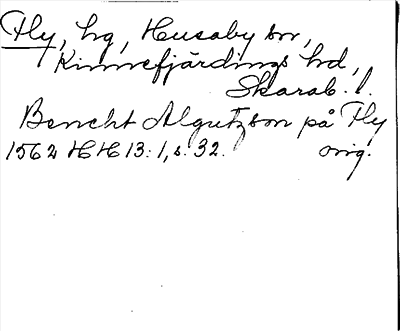 Fly, hg, Husaby sn,
Kinnefjärdings hd,
Skarab. l.
Bencht Algutzson på Fly
1562 HH 13:1, s. 32. orig.